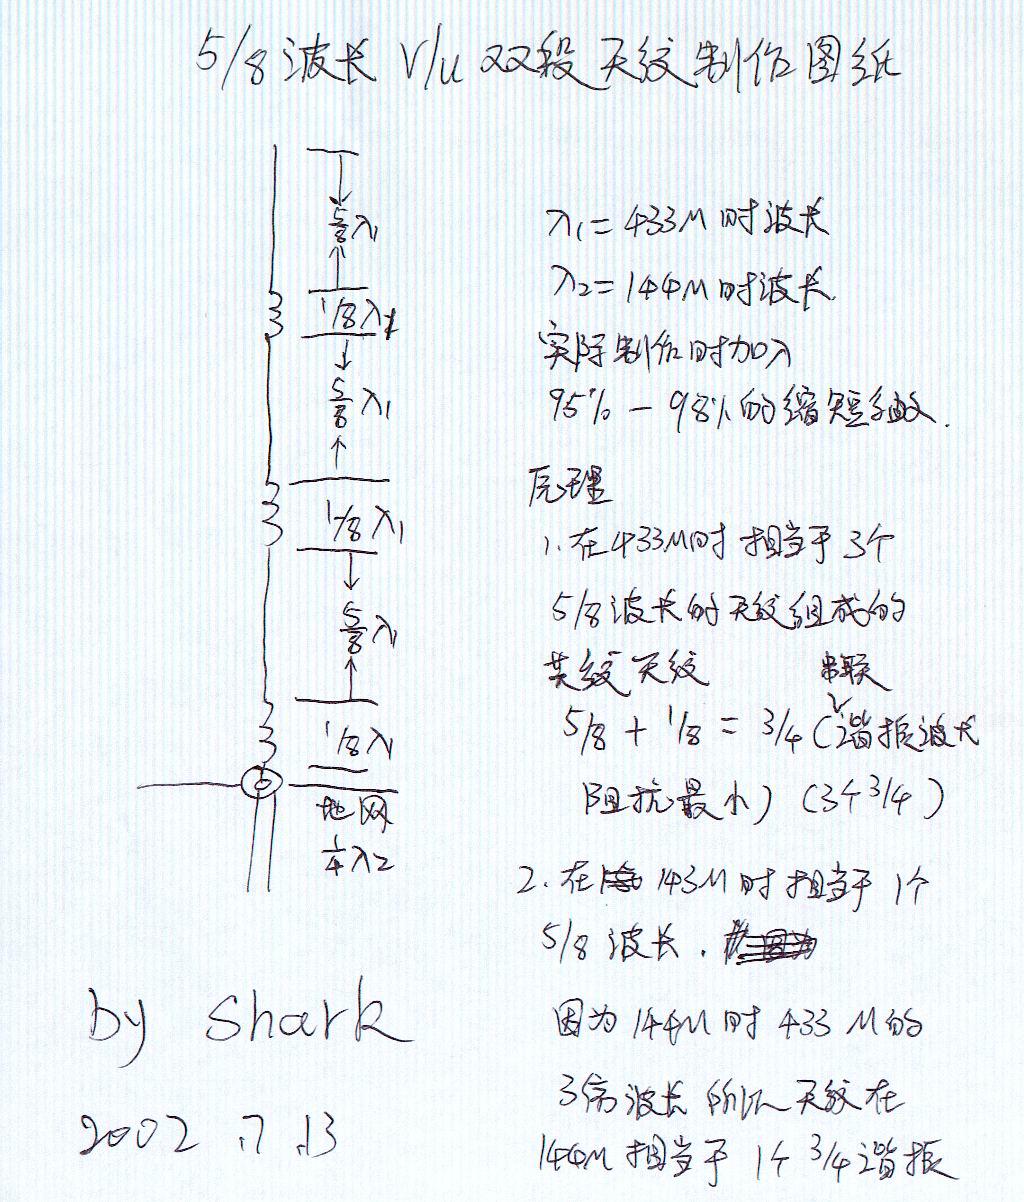 5/8波长 V/U 双段天线制作图纸
5/8 λ1
1/8 λ1
5/8 λ1
1/8 λ1
5/8 λ1
1/8 λ1
地网
1/4 λ2
λ1=433M时波长
λ2=144M时波长.
实际制作时加入
95%－98%的缩短系数.
原理
1.在433M时相当于3个
5/8波长的天线组成的
共线天线
串联
5/8+1/8=3/4(谐振波长
阻抗最小)(3个3/4)
2.在143M时相当于1个
5/8波长.
因为144M时433M的
3倍波长所以天线在
144M相当于1个3/4谐振
by shark
2002.7.13